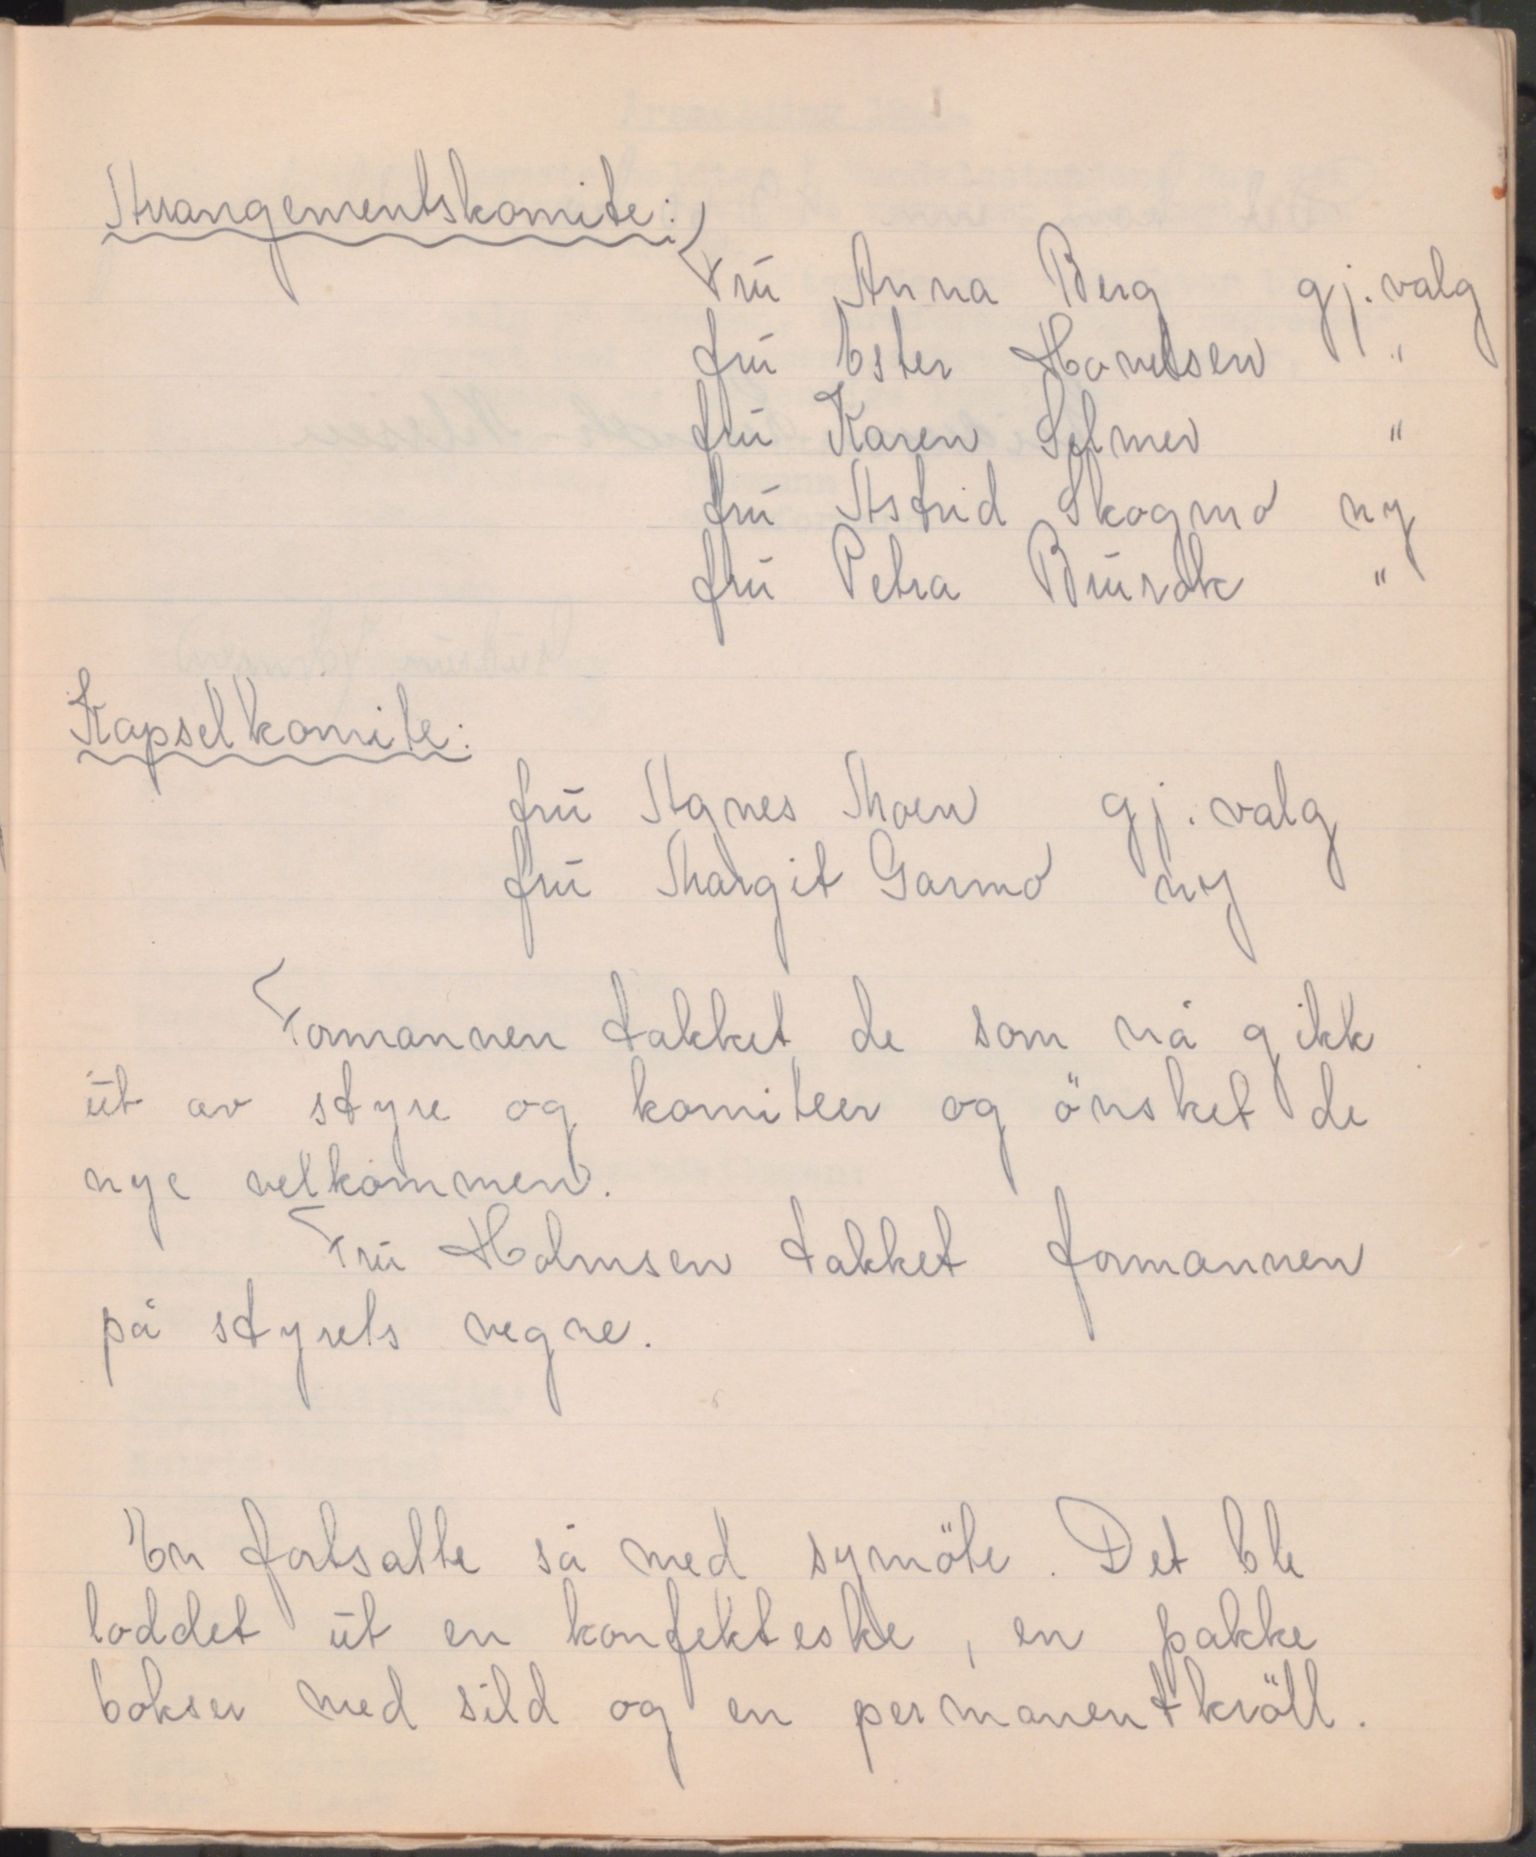 Arrangementskomite:
Fru Anna Berg gj. valg
fru Ester Hovelsen "
fru Karen Selmer "
fru Astrid Skogmo ny
fru Petra "
Kapselkomite:
fru Agnes Moen gj. valg
fru Margit Garmo ny
Formannen takket de som nå gikk
ut av styre og komiteer og önsket de
nye velkommen.
Fru Holmsen takket formannen
på styrets vegne.
En fortsatte så med symöte. Det ble
loddet ut en konfekteske, en pakke
bokser med sild og en permanentkröll.